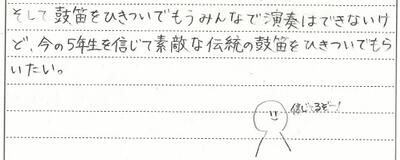 そして鼓笛をひきついでもうみんなで演奏はできないけ
ど、今の5年生を信じて素敵な伝統の鼓笛をひきついでもら
いたい。
信じてるぞー!